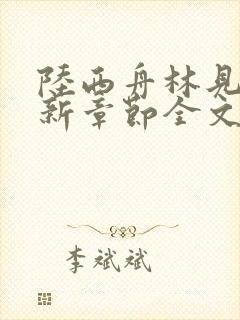 陸西舟林見
新章節全文
李斌斌